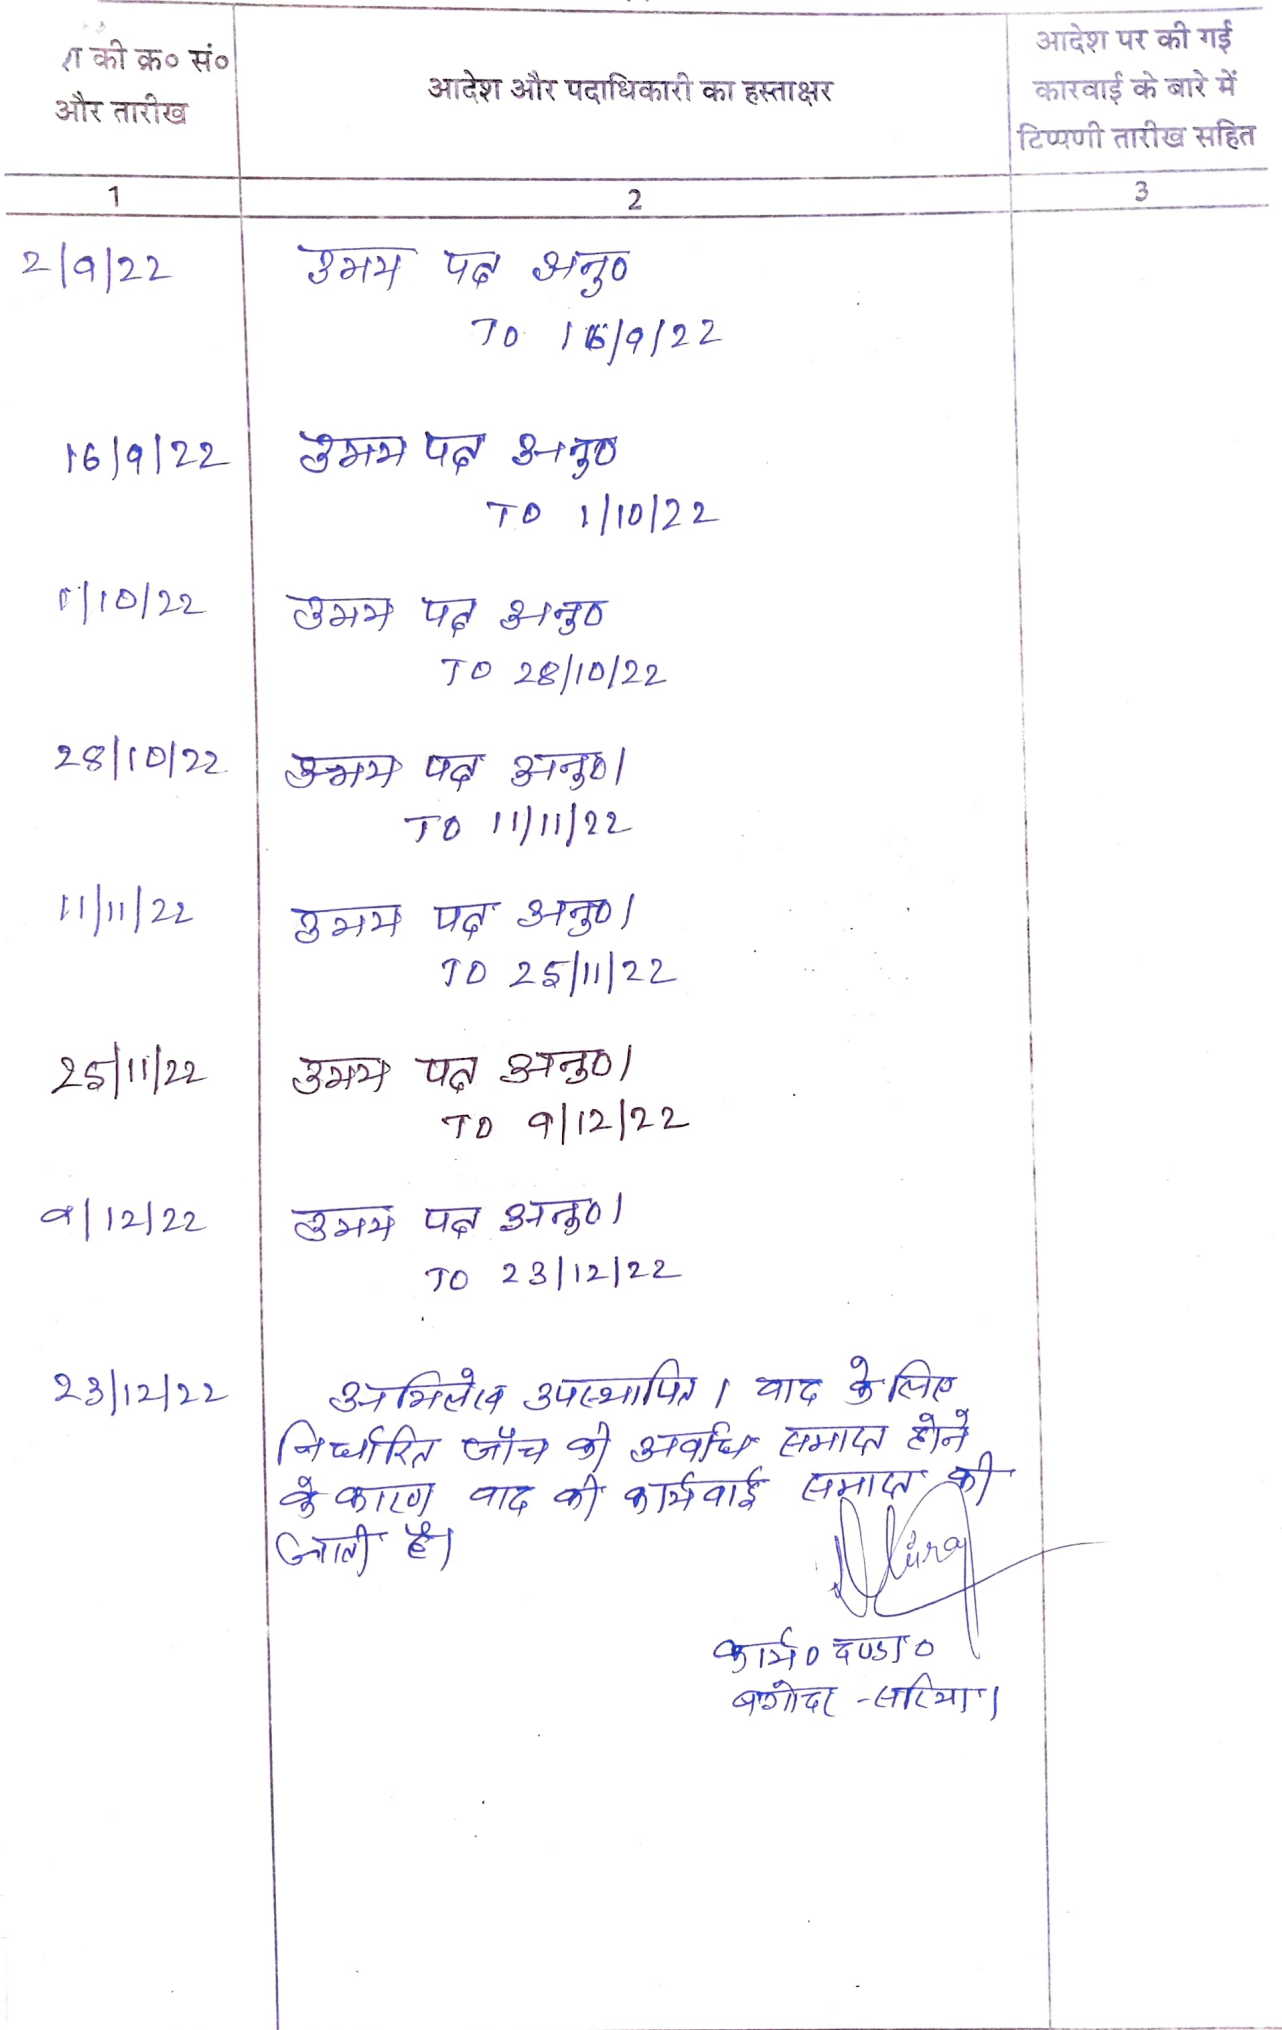 श की क्र० सं०
और तारीख
आदेश और पदाधिकारी का हस्ताक्षर
आदेश पर की गई
कारवाई के बारे में
टिप्पणी तारीख सहित
1
2
3
2/9/22
उभय पक्ष अनु०
TO 16/9/22
16/9/22
उभय पक्ष अनु०
TO 1/10/22
1/10/22
उभय पक्ष अनु०
TO 28/10/22
28/10/22
उभय पक्ष अनु०।
TO 11/11/22
11/11/22
उभय पक्ष अनु०।
TO 25/11/22
25/11/22
उभय पक्ष अनु०।
TO 9/12/22
9/12/22
उभय पक्ष अनु०।
TO 23/12/22
23/12/22
अभिलेख उपस्थापित। वाद के लिए
निर्धारित जाँच की अवधि समाप्त होने
के कारण वाद की कार्यवाई समाप्त की
जाती है।
कार्य० दण्डा०
बगोदर - सरिया।